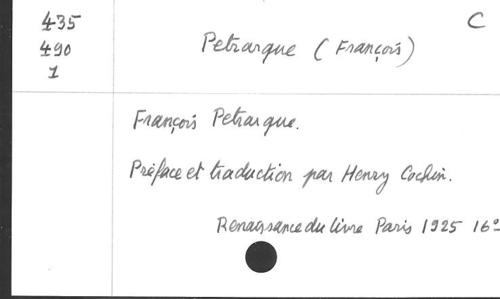 435
490
1
C
Petrarque (François)
François Petrarque.
Préface et traduction par Henry Cochin.
Renaissance du livre Paris 1925 16º